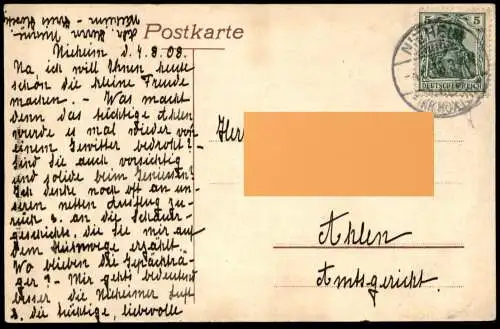 Postkarte
Nieheim d. 4.8.08.
Na, ich will Ihnen heute
schon die kleine Freude
machen. – Was macht
denn das tüchtige Ahlen
wurde es mal wieder von
einem Gewitter bedroht? –
Sind Sie auch vorsichtig
und solide beim Geniessen?
Ich denke noch oft an un-
seren netten Ausflug zu-
rück u. an die Schauer-
geschichte, die Sie mir auf
dem Heimwege erzählt.
Wo blieben die Gepäckträ-
ger? – Mir gehts bedeutend
besser die Nieheimer Luft
u. die tüchtige, liebevolle
5 5
DEUTSCHES REICH
NIEHEIM
(KR. HÖX
Herr
Ahlen
Amtsgericht.